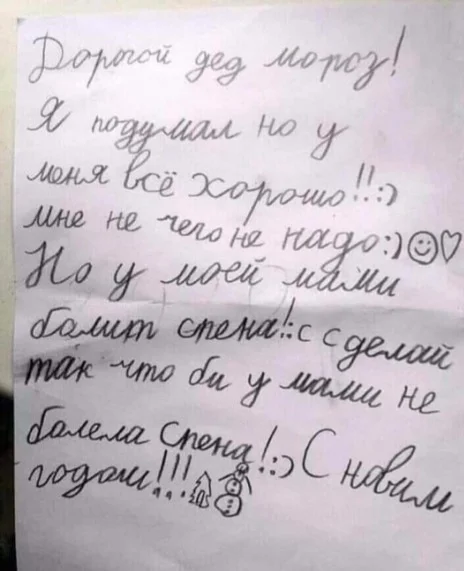 Дорогой дед мороз!
Я подумал но у
меня всё хорошо!!:)
мне не чего не надо:)☺♡
Но у моей мами
болит спена!:с сделай
так что би у мами не
болела Спена!:) С новим
годом!!!